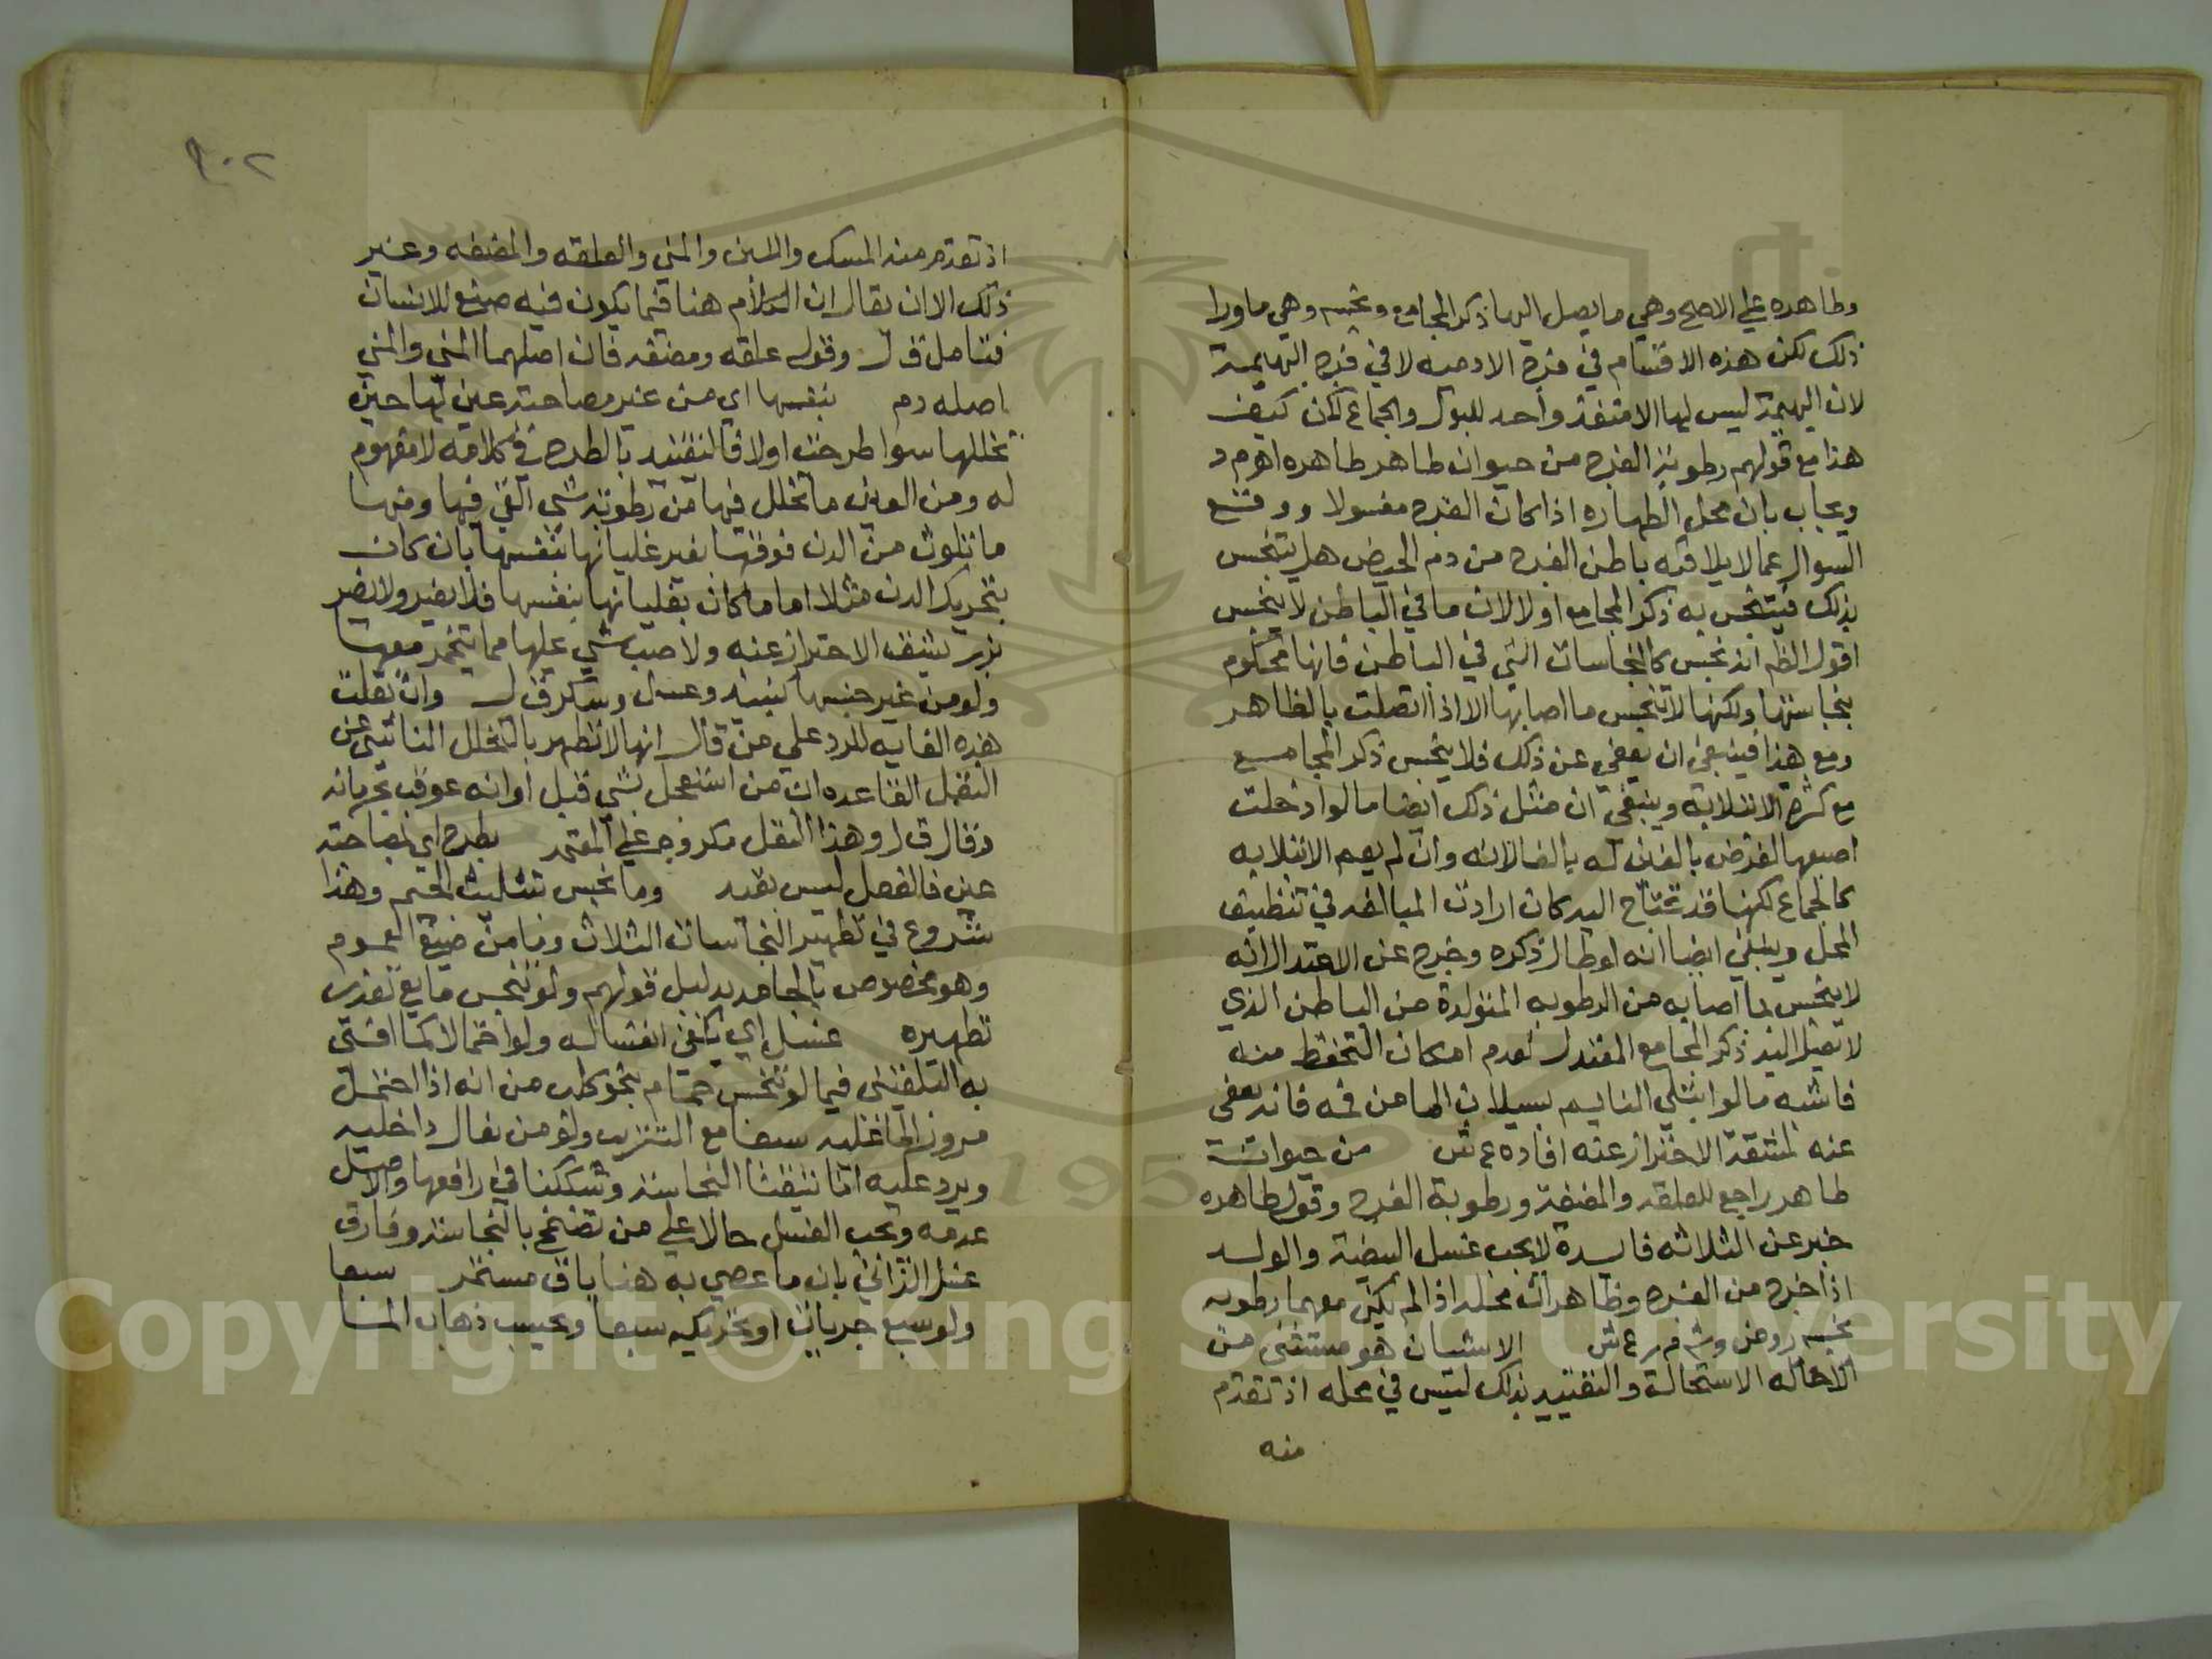 وطاهره علي الاصح وهي ما يصل اليها ذكر المجامع ونجسه وهي ما ورا
ذلك لكن هذه الاقسام في فرج الادميه لا في فرج البهيمة
لان البهيمة ليس لها الا منفذ واحد للبول والجماع لكن كيف
هذا مع قولهم رطوبة الفرج من حيوان طاهر طاهره اهـ م د
ويجاب بان محل الطهاره اذا كان الفرج مغسولا ووقع
السوال عما لا يلاقيه باطن الفرج من دم الحيض هل يتنجس
بذلك فيتنجس به ذكر المجامع او لا لان ما في الباطن لا ينجس
اقول الظم انه نجس كالنجاسات التي في الباطن فانها محكوم
بنجاستها ولكنها لا تنجس ما اصابها الا اذا اتصلت بالظاهر
ومع هذا فينبغي ان يعفي عن ذلك فلا ينجس ذكر المجامع
مع كثرة الابتلابه وينبغي ان مثل ذلك ايضا ما لو ادخلت
اصبعها لغرض بالغت له بالغا لانه وان لم يعم الابتلابه
كالجماع لكنها قد تحتاج اليه كان ارادت المبالغه في تنظيف
المحل وينبغي ايضا انه لو طال ذكره وخرج عن الاعتدال انه
لا ينجس بما اصابه من الرطوبه المتولدة من الباطن الذي
لا يصل اليه ذكر المجامع المعتدل لعدم امكان التحفظ منه
فاشبه ما لو ابتلي النايم بسيلان الما من فمه فانه يعفي
عنه لمشقة الاحتراز عنه افاده ع ش من حيوان
طاهر راجع للعلقه والمضغة ورطوبة الفرج وقوله طاهره
خبر عن الثلاثه فايدة لا يجب غسل البيضة والولد
اذا خرج من الفرج وظاهر ان محله اذا لم يكن معهما رطوبه
نجسه روض وشرح م ر ع ش الا شيان هو مستثني من
الاحاله الاستحالة والتقييد بذلك ليس في محله اذ تقدم
منه
٢٠٢
اذ تقدم منه المسك واللبن والمني والعلقه والمضغه وغير
ذلك الا ان يقال ان الكلام هنا فيما يكون فيه صنع للانسان
فتامل ق ل وقوله علقه ومضغه فان اصلهما المني والمني
اصله دم بنفسها اي من غير مصاحبة عين لها حين
تخللها سوا طرحت اولا فالتقييد بالطرح في كلامه لا مفهوم
له ومن العين ما تخلل فيها من رطوبة شي القي فيها ومنها
ما تلوث من الدن فوقها بغير غليانها بنفسها بان كان
بتحريك الدن مثلا اما ما كان بغليانها بنفسها فلا يضر ولا يضر
بزر يشق الاحتراز عنه ولا صب شي عليها مما يتخمر معها
ولو من غير جنسها كنبيذ وعسل وسكر ق ل وان نقلت
هذه الغايه للرد علي من قال انها لا تطهر بالتخلل الناشي عن
النقل لقاعده ان من استعجل بشي قبل اوانه عوقب بحرمانه
وقال ق ل وهذا النقل مكروه علي المعتمد بطرح اي بمصاحبة
عين فالفصل ليس بقيد وما نجس بتثليث الجيم وهذا
شروع في تطهير النجاسات الثلاث وما من صيغ العموم
وهو مخصوص بالجامد بدليل قولهم ولو تنجس مايع تعذر
تطهيره غسل اي يكفي انغساله ولو احتمالا كما افتي
به البلقيني فيما لو تنجس حمام بنحو كلب من انه اذا احتمل
مرور الما عليه سبعا مع التتريب ولو من نعال داخليه
ويرد عليه اننا تيقنا النجاسة وشككنا في رافعها والاصل
عدمه ويجب الغسل حالا علي من تضمخ بالنجاسة وفارق
غسل الزاني بان ما عصي به هنا باق مستمر سبعا
ولو سبع جريات او تحريكه سبعا ويحسب ذهاب الما